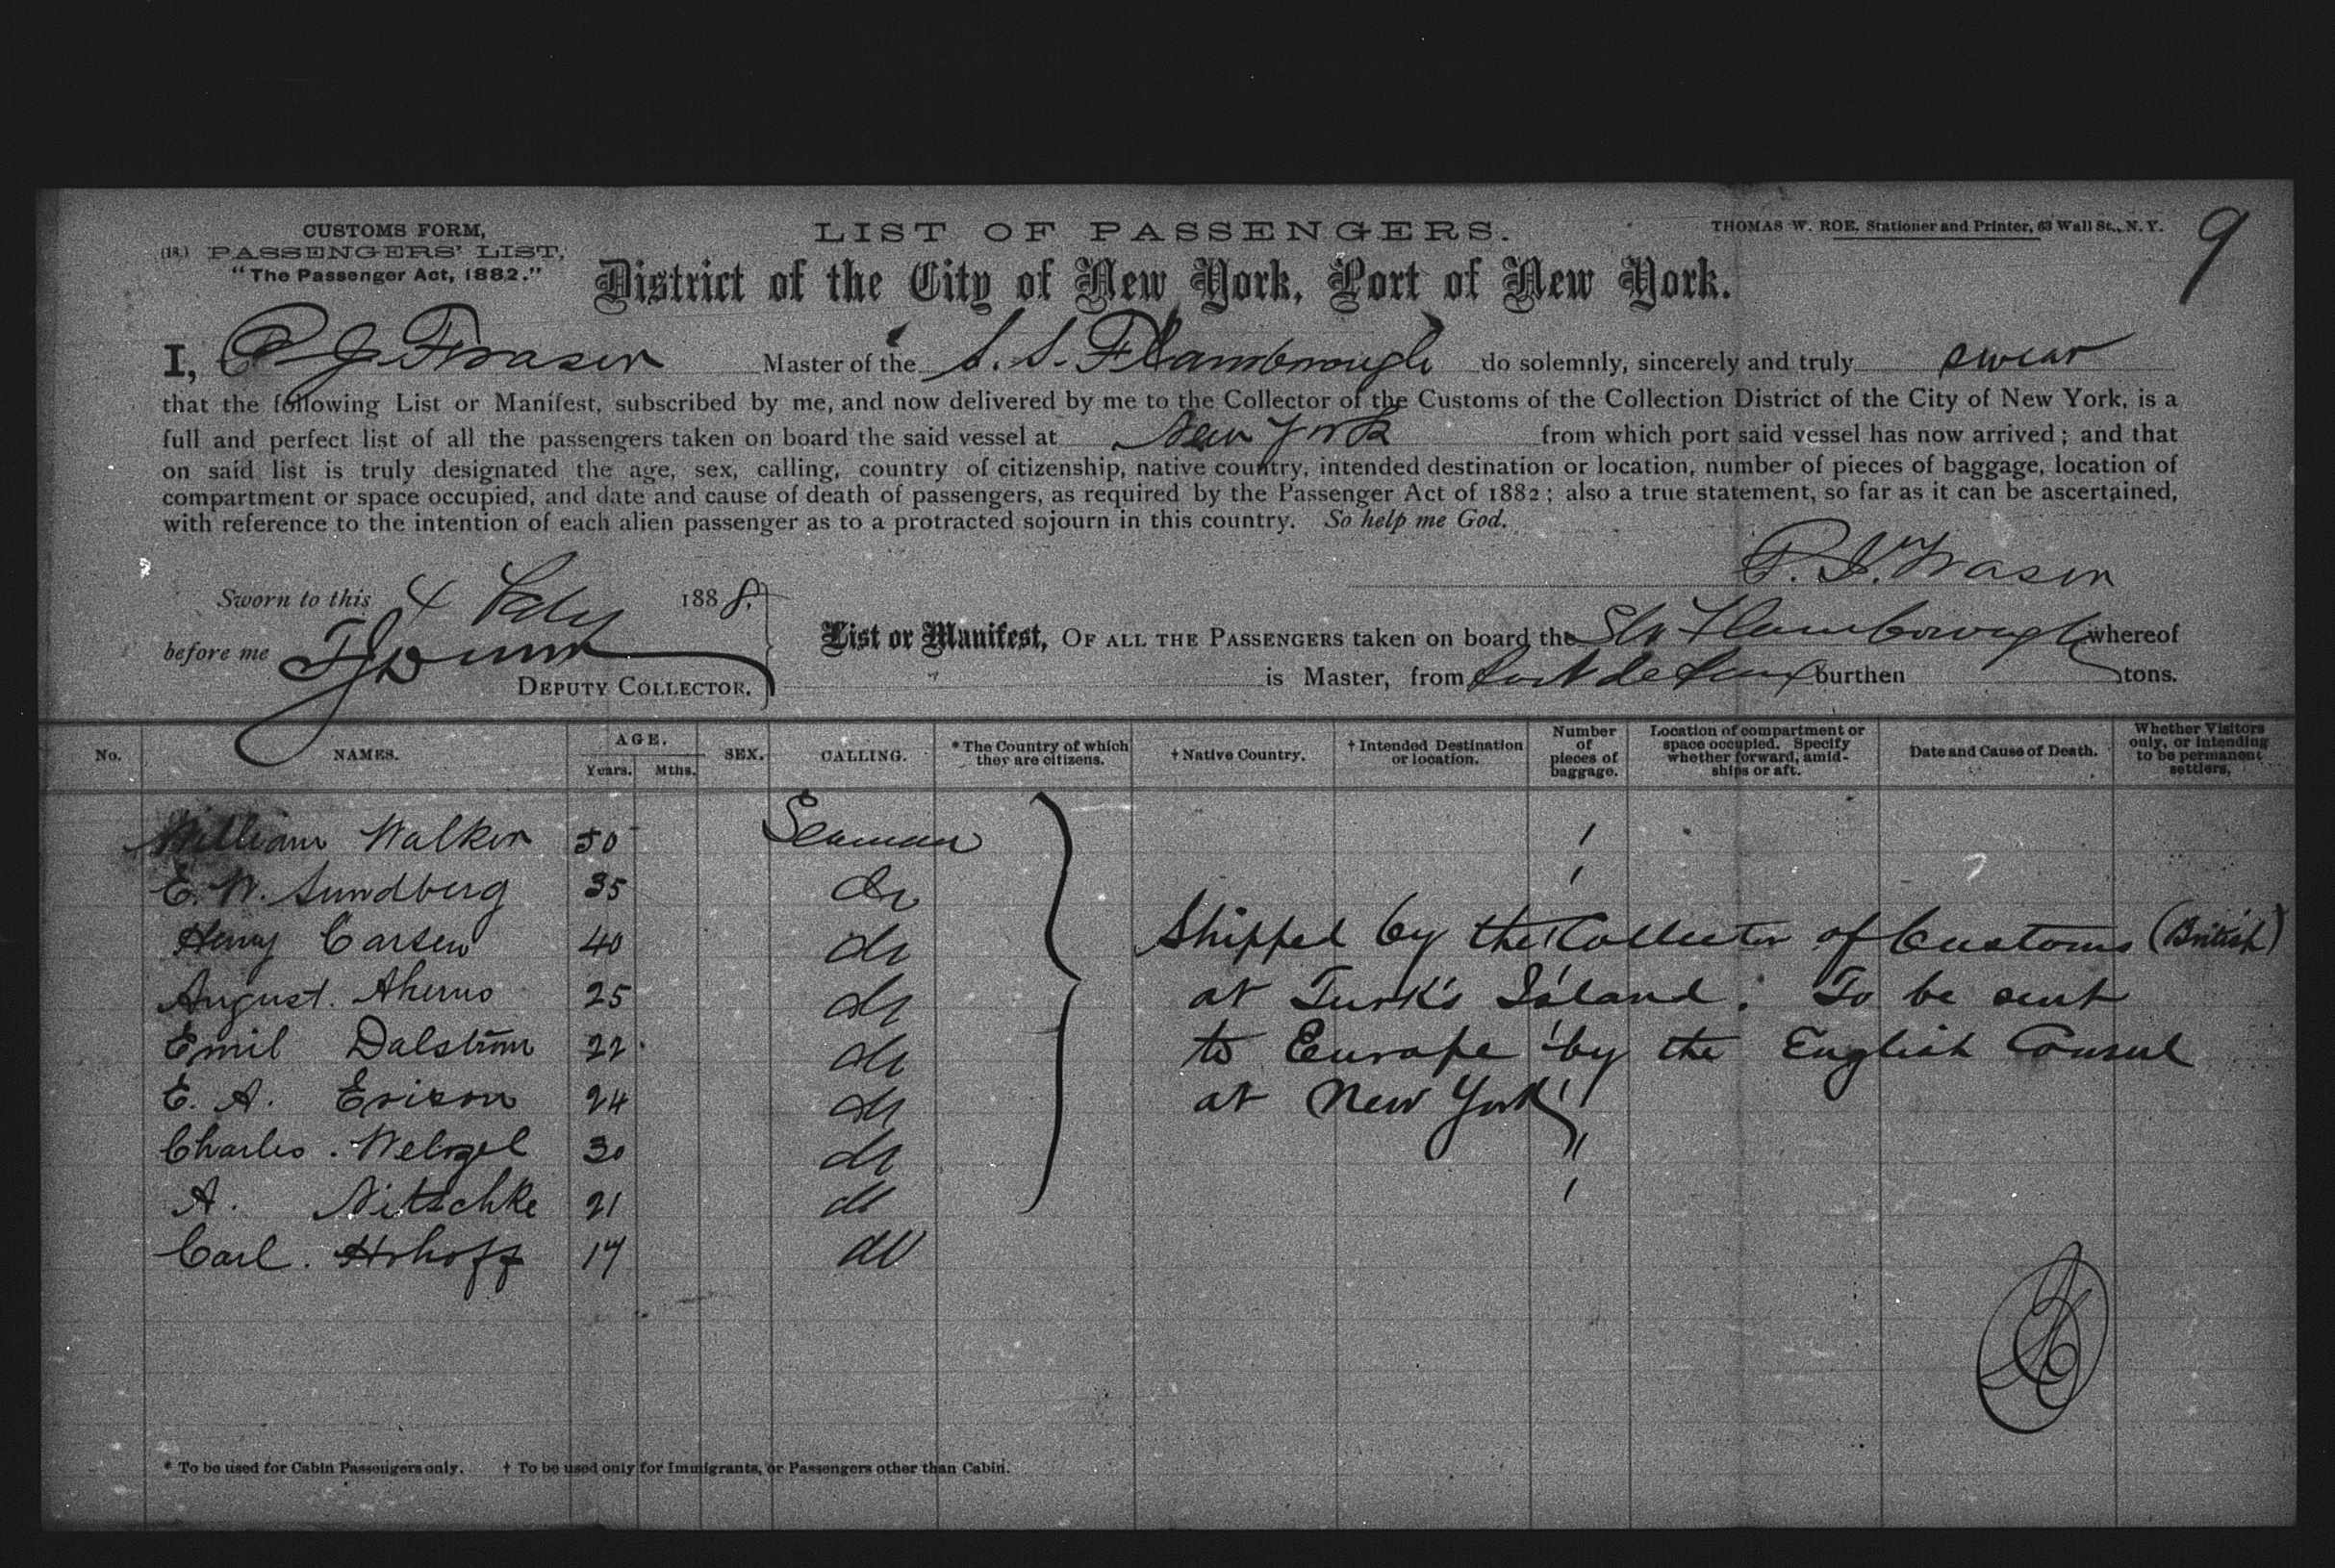 CUSTOMS FORM,
(18.) PASSENGERS' LIST,
"The Passenger Act, 1882."
LIST OF PASSENGERS.
THOMAS W. ROE, Stationer and Printer, 63 Wall St., N. Y.
9
District of the City of New York, Port of New York.
I, P J Fraser Master of the S. S. Flamborough do solemnly, sincerely and truly swear
that the following List or Manifest, subscribed by me, and now delivered by me to the Collector of the Customs of the Collection District of the City of New York, is a
full and perfect list of all the passengers taken on board the said vessel at New York from which port said vessel has now arrived; and that
on said list is truly designated the age, sex, calling, country of citizenship, native country, intended destination or location, number of pieces of baggage, location of
compartment or space occupied, and date and cause of death of passengers, as required by the Passenger Act of 1882; also a true statement, so far as it can be ascertained,
with reference to the intention of each alien passenger as to a protracted sojourn in this country. So help me God.
P. J. Fraser
Sworn to this 4 Feby 1888.
before me
DEPUTY COLLECTOR.
List or Manifest, OF ALL THE PASSENGERS taken on board the Str Flamborough whereof
is Master, from burthen tons.
No. NAMES. AGE. Years. Mths. SEX. CALLING. * The Country of which they are citizens. † Native Country. † Intended Destination or location. Number of pieces of baggage. Location of compartment or space occupied. Specify whether forward, amidships or aft. Date and Cause of Death. Whether Visitors only, or intending to be permanent settlers,
William Walker 50 Seaman 1
E. W. Sundberg 35 do 1
Henry Carsen 40 do
August. Aherns 25 do
Emil Dalström 22 do
E. A. Erikson 24 do 1
Charles. Welzgel 30 do 1
A. Nitschke 21 do 1
Carl. Hohoff 17 do
Shipped by the Collector of Customs (British)
at Turk's Island. To be sent
to Europe by the English Consul
at New York
* To be used for Cabin Passengers only. † To be used only for Immigrants, or Passengers other than Cabin.